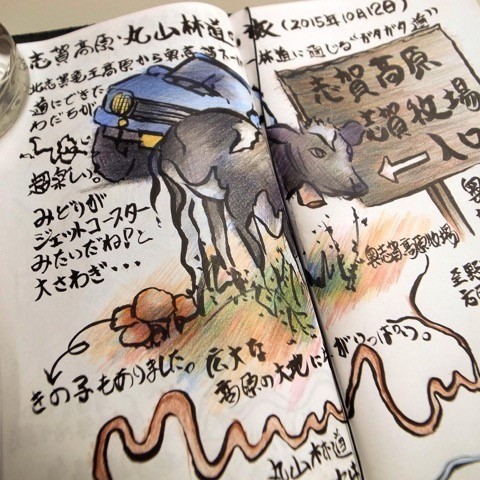 志賀高原・丸山林道の
(2015年10月12日)
から奥志賀
林道に通じる"ガタガタ道"
道にできた
わだちが
超楽しい。
みどりが
ジェットコースター
みたいだね！と
大さわぎ・・・
志賀高原
志賀牧場
←入口
奥志賀高原牧場
きの子もありました。広大な
高原の大地に牛がいっぱい。
丸山林道